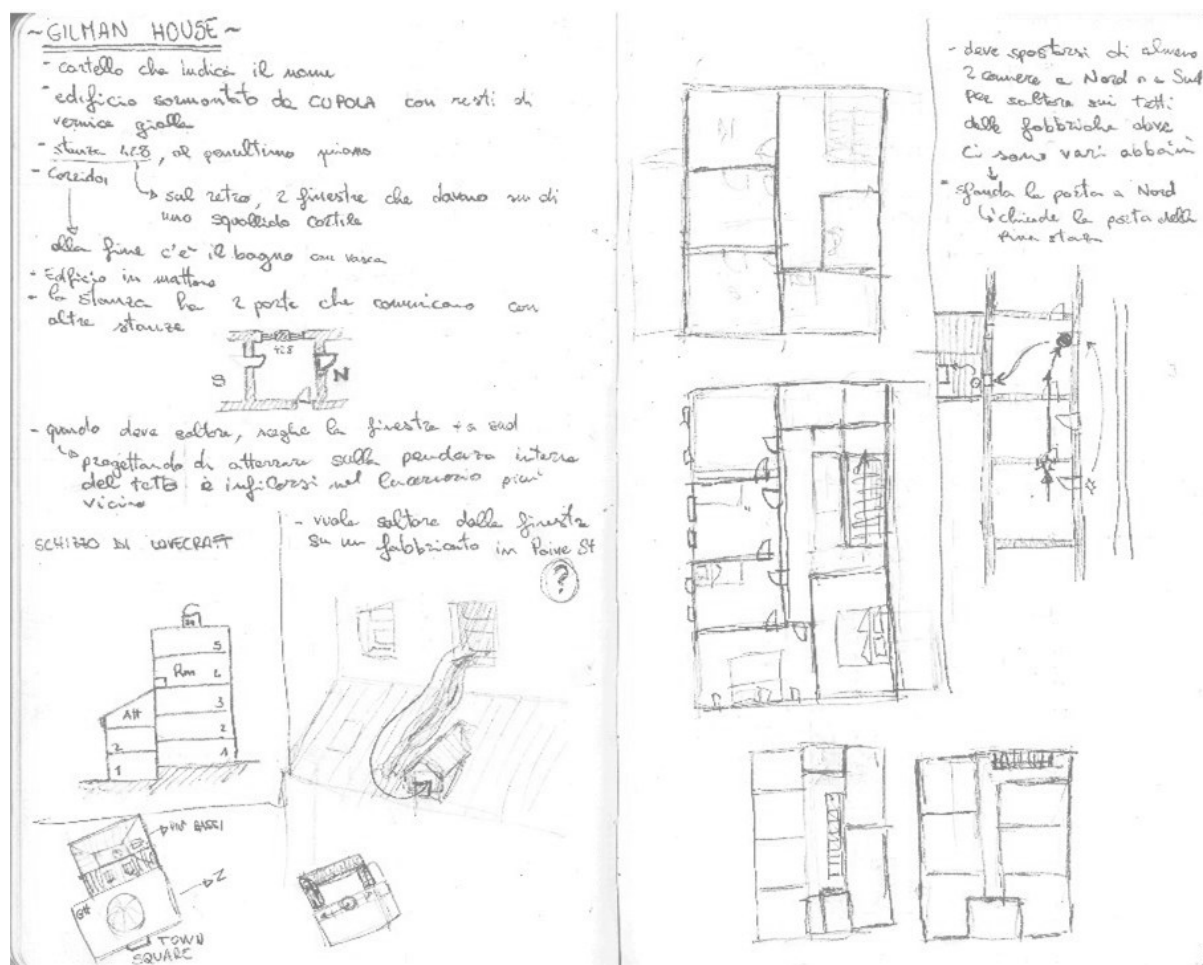 ~GILMAN HOUSE~
- cartello che indica il nome
- edificio sormontato da CUPOLA con resti di
vernice gialla
- stanza 428, al penultimo piano
- Corridoi
sul retro, 2 finestre che davano su di
uno squallido cortile
alla fine c'è il bagno con vasca
- Edificio in mattoni
- la stanza ha 2 porte che comunicano con
altre stanze
428
S
N
- quando deve saltare, sceglie la finestra + a sud
progettando di atterrare sulla pendenza interna
del tetto e infilarsi nel lucernario più
vicino
SCHIZZO DI LOVECRAFT
- vuole saltare dalla finestra
su un fabbricato in Paine St
?
5
Rm 4
3
2
1
Att
2
1
PIÙ BASSI
N
GH
TOWN
SQUARE
- deve spostarsi di almeno
2 camere a Nord o a Sud
per saltare sui tetti
delle fabbriche dove
ci sono vari abbaini
- sfonda la porta a Nord
chiude la porta della
prima stanza